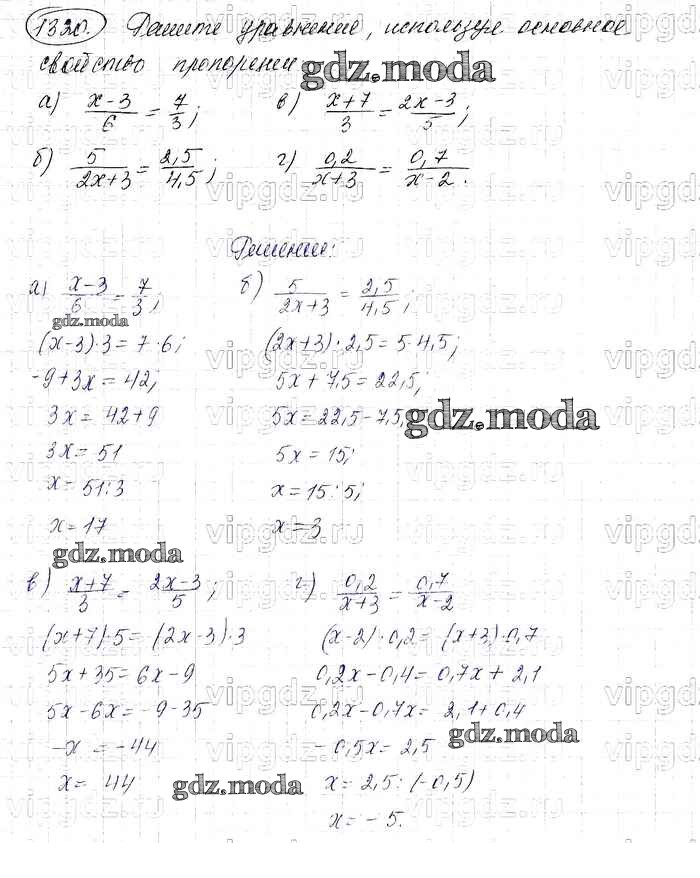 1320. Решите уравнение, используя основное
свойство пропорции
gdz.moda
а) x-3/6 = 7/3; в) x+7/3 = 2x-3/5;
б) 5/2x+3 = 2,5/4,5; г) 0,2/x+3 = 0,7/x-2.
Решение:
а) x-3/6 = 7/3; б) 5/2x+3 = 2,5/4,5;
gdz.moda
(x-3)·3 = 7·6; (2x+3)·2,5 = 5·4,5;
-9+3x = 42; 5x + 7,5 = 22,5;
3x = 42+9 5x = 22,5-7,5,
gdz.moda
3x = 51 5x = 15;
x = 51:3 x = 15:5;
x = 17 x = 3
gdz.moda
в) x+7/3 = 2x-3/5; г) 0,2/x+3 = 0,7/x-2
(x+7)·5 = (2x-3)·3 (x-2)·0,2 = (x+3)·0,7
5x+35 = 6x-9 0,2x-0,4 = 0,7x + 2,1
5x-6x = -9-35 0,2x-0,7x = 2,1+0,4
-x = -44 -0,5x = 2,5
gdz.moda
x = 44 x = 2,5:(-0,5)
gdz.moda
x = -5.
vipgdz.ru